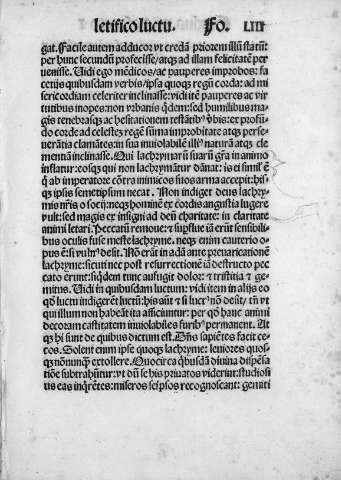 letifico luctu. Fo. LIII
gat. Facile autem adducor vt credā priorem illū statū
per hunc secundū profecisse/atqȝ ad illam felicitatē per
uenisse. Uidi ego mēdicos/ac pauperes improbos: fa
cetijs quibusdam verbis/ipsa quoqȝ regū corda: ad mi
sericordiam celeriter inclinasse: vidi itē pauperes ac vir
tutibus inopes: non vrbanis qdem: sed humilibus ma
gis tenebrasqȝ ac hesitationem vbis: ex profū
do corde ad celestē regē sūma improbitate atqȝ perse
uerātia clamātes: in sua inuiolabilē naturā atqȝ cle
mentiā inclinasse. Qui lachrymarū suarū gr̄a in animo
inflatur: eosqȝ qui non lachrymātur dānat: is ē simil̄ ei
q ab imperatore cōtra inimicos suos arma accepit: his
qȝ ipsis semetipsum necat. Non indiget deus lachry
mis nr̄is o socij: neqȝ hominē ex cordis angustia lugere
vult: sed magis ex insigni ad deū charitate: in claritate
animi letari. Peccatū remoue: & supflue iā erūt sensibili
bus oculis fuse meste lachryme. neqȝ enim cauterio o
pus desit. Nō erāt in adā ante preuaricationē
lachryme: sicuti nec post resurrectionē iā destructo pec
cato erūt: sqdem tunc aufugit dolor: & tristitia & ge
mitus. Uidi in quibusdam luctum: vidi item in alijs eo
qd luctu indigerēt luctū: his aūt desit/ tn̄ vt
qui illum non habeāt ita afficiuntur: per qd hanc animi
decoram castitatem inuiolabiles permanent. At
qȝ hi sunt de quibus dictum est. Dn̄s sapiētes facit ce
cos. Solent enim ipse quoqȝ lachryme: leuiores quos
qȝ nōnunqȝ extollere. Quocirca qbusdā diuina dispēsa
tiōe subtrahūtur: vt dū se his priuatos viderint: studiosi
us eas inqrētes: miseros seipsos recognoscant: gemiti